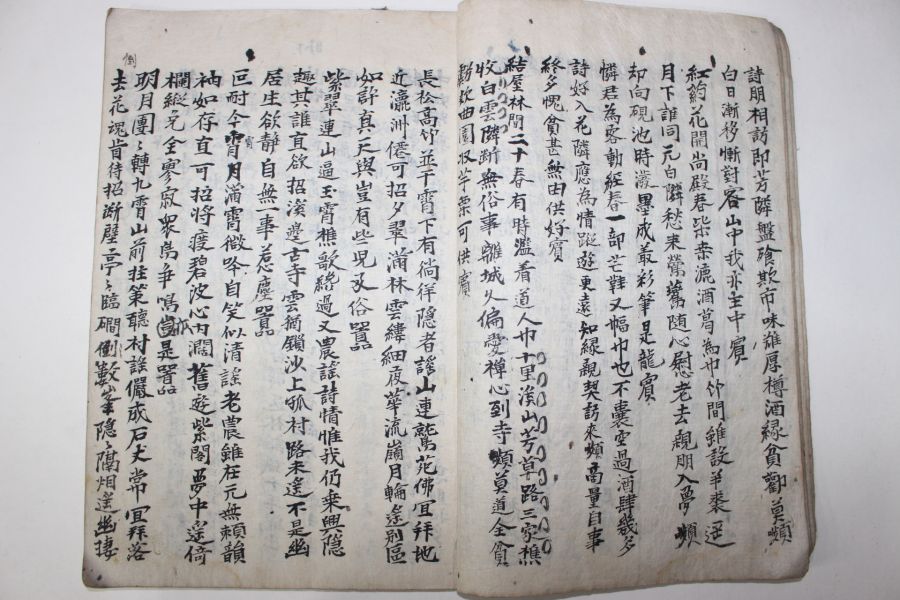 詩朋相訪即芳隣盤飧欺市味雖厚樽酒緣貧勸莫頻
白日漸移慚對客山中我亦主中賓
紅約花開尚殿春柴桑漉酒葛為巾竹間雖設羊裘逕
月下誰同元白隣愁來鶯鶯随心慰老去親朋入夢頻
却向硯池時潑墨成最彩筆是龍賓
憐君為客動經春一部芒鞋又幅巾也不囊空過酒肆幾多
詩好入花隣應為情蹤遊更遠知緣親契訪來頻商量自事
終多愧貧甚無由供好賓
結屋林間二十春有時濫着道人巾十里溪山芳草路三家樵
收白雲隣断無俗事離城久偏愛禪心到寺頻莫道全貧
曲園收芋栗可供賓
長松高竹並干霄下有徜徉隐者謠山連鷲苑佛冝拜地
近瀛洲僊可招夕翠滿林雲縷細夜華流嶺月輪遙別區
如許真天與豈有些児及俗囂
紫翠連山逼玉霄樵歌繞過又農謠詩情惟我仍乗興隐
趣其誰直欲招溪邊古寺雲猶鎖沙上孤村路未遙不是幽
居生欲靜自無一事惹塵囂
叵耐今宵月滿霄微吟自笑似清謠老農雖在元無頼韻
衲如存直可招將疲碧波心内濶舊遊紫閣夢中遙倚
欄縱是全寥寂衆鳥爭鳴豈是囂
明月團〻轉九霄山前拄策聽村謠儼成石丈常冝拜落
去花魂肯待招断壁亭〻臨磵倒數峯隐〻隔烟遙幽棲